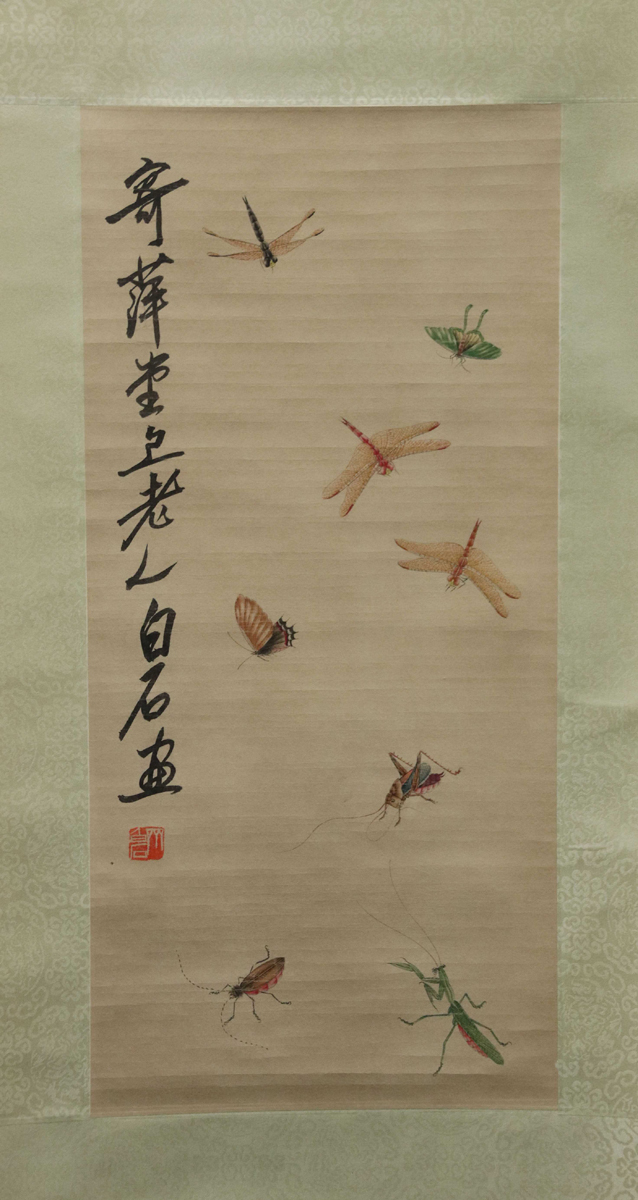 寄萍堂上老人白石画